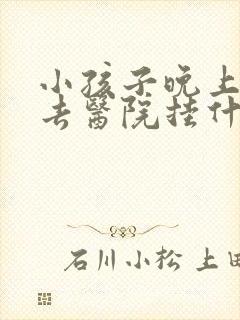 小孩子晚上
去醫院挂什
石川小松 上田